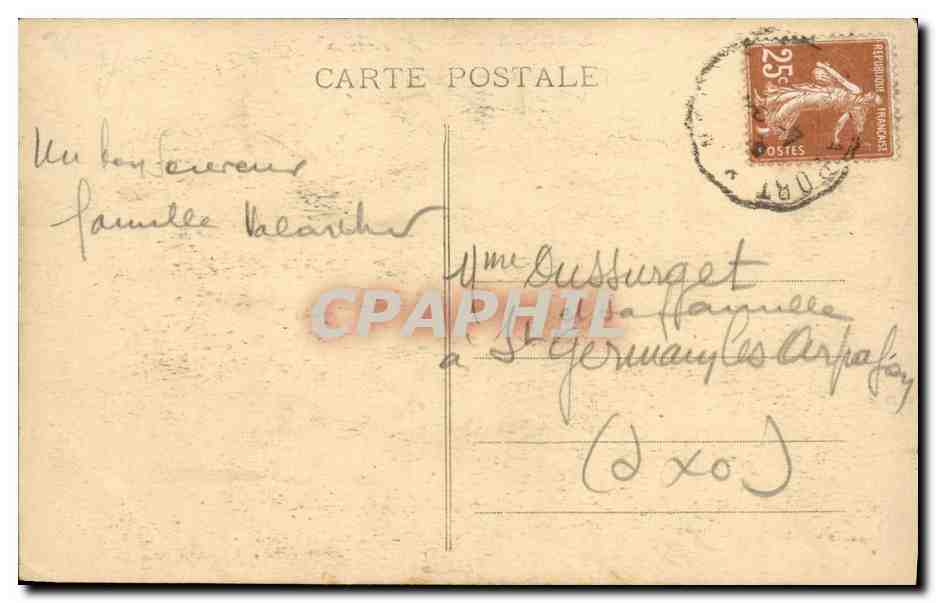 CARTE POSTALE
Un bon souvenir
famille
Mme Dussurget
et sa famille
à St Germain les Arpajon
(SxO)
25c
REPUBLIQUE FRANÇAISE
POSTES
CPAPHIL